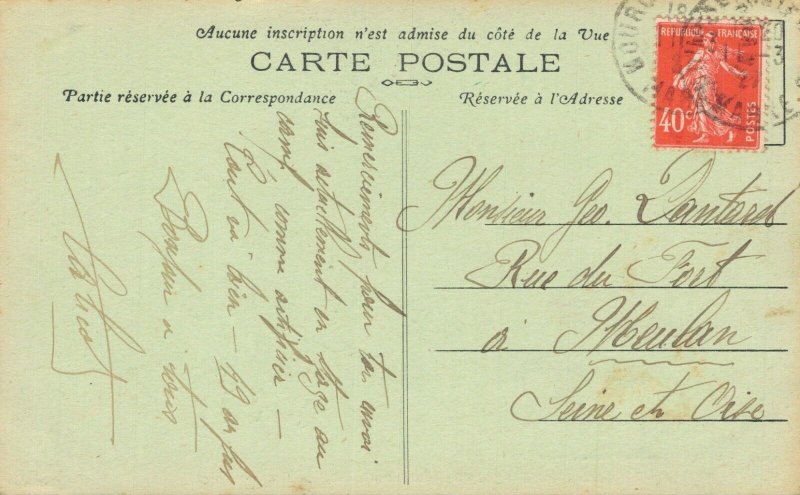 Aucune inscription n'est admise du côté de la Vue
CARTE POSTALE
Partie réservée à la Correspondance
Réservée à l'Adresse
RÉPUBLIQUE FRANÇAISE
40c
POSTES
Remerciements pour ton envoi
suis actuellement en stage au
camp comme artificier –
Tout va bien –
Bonjour à tous
Monsieur Geo.
Rue du Fort
à Meulan
Seine et Oise